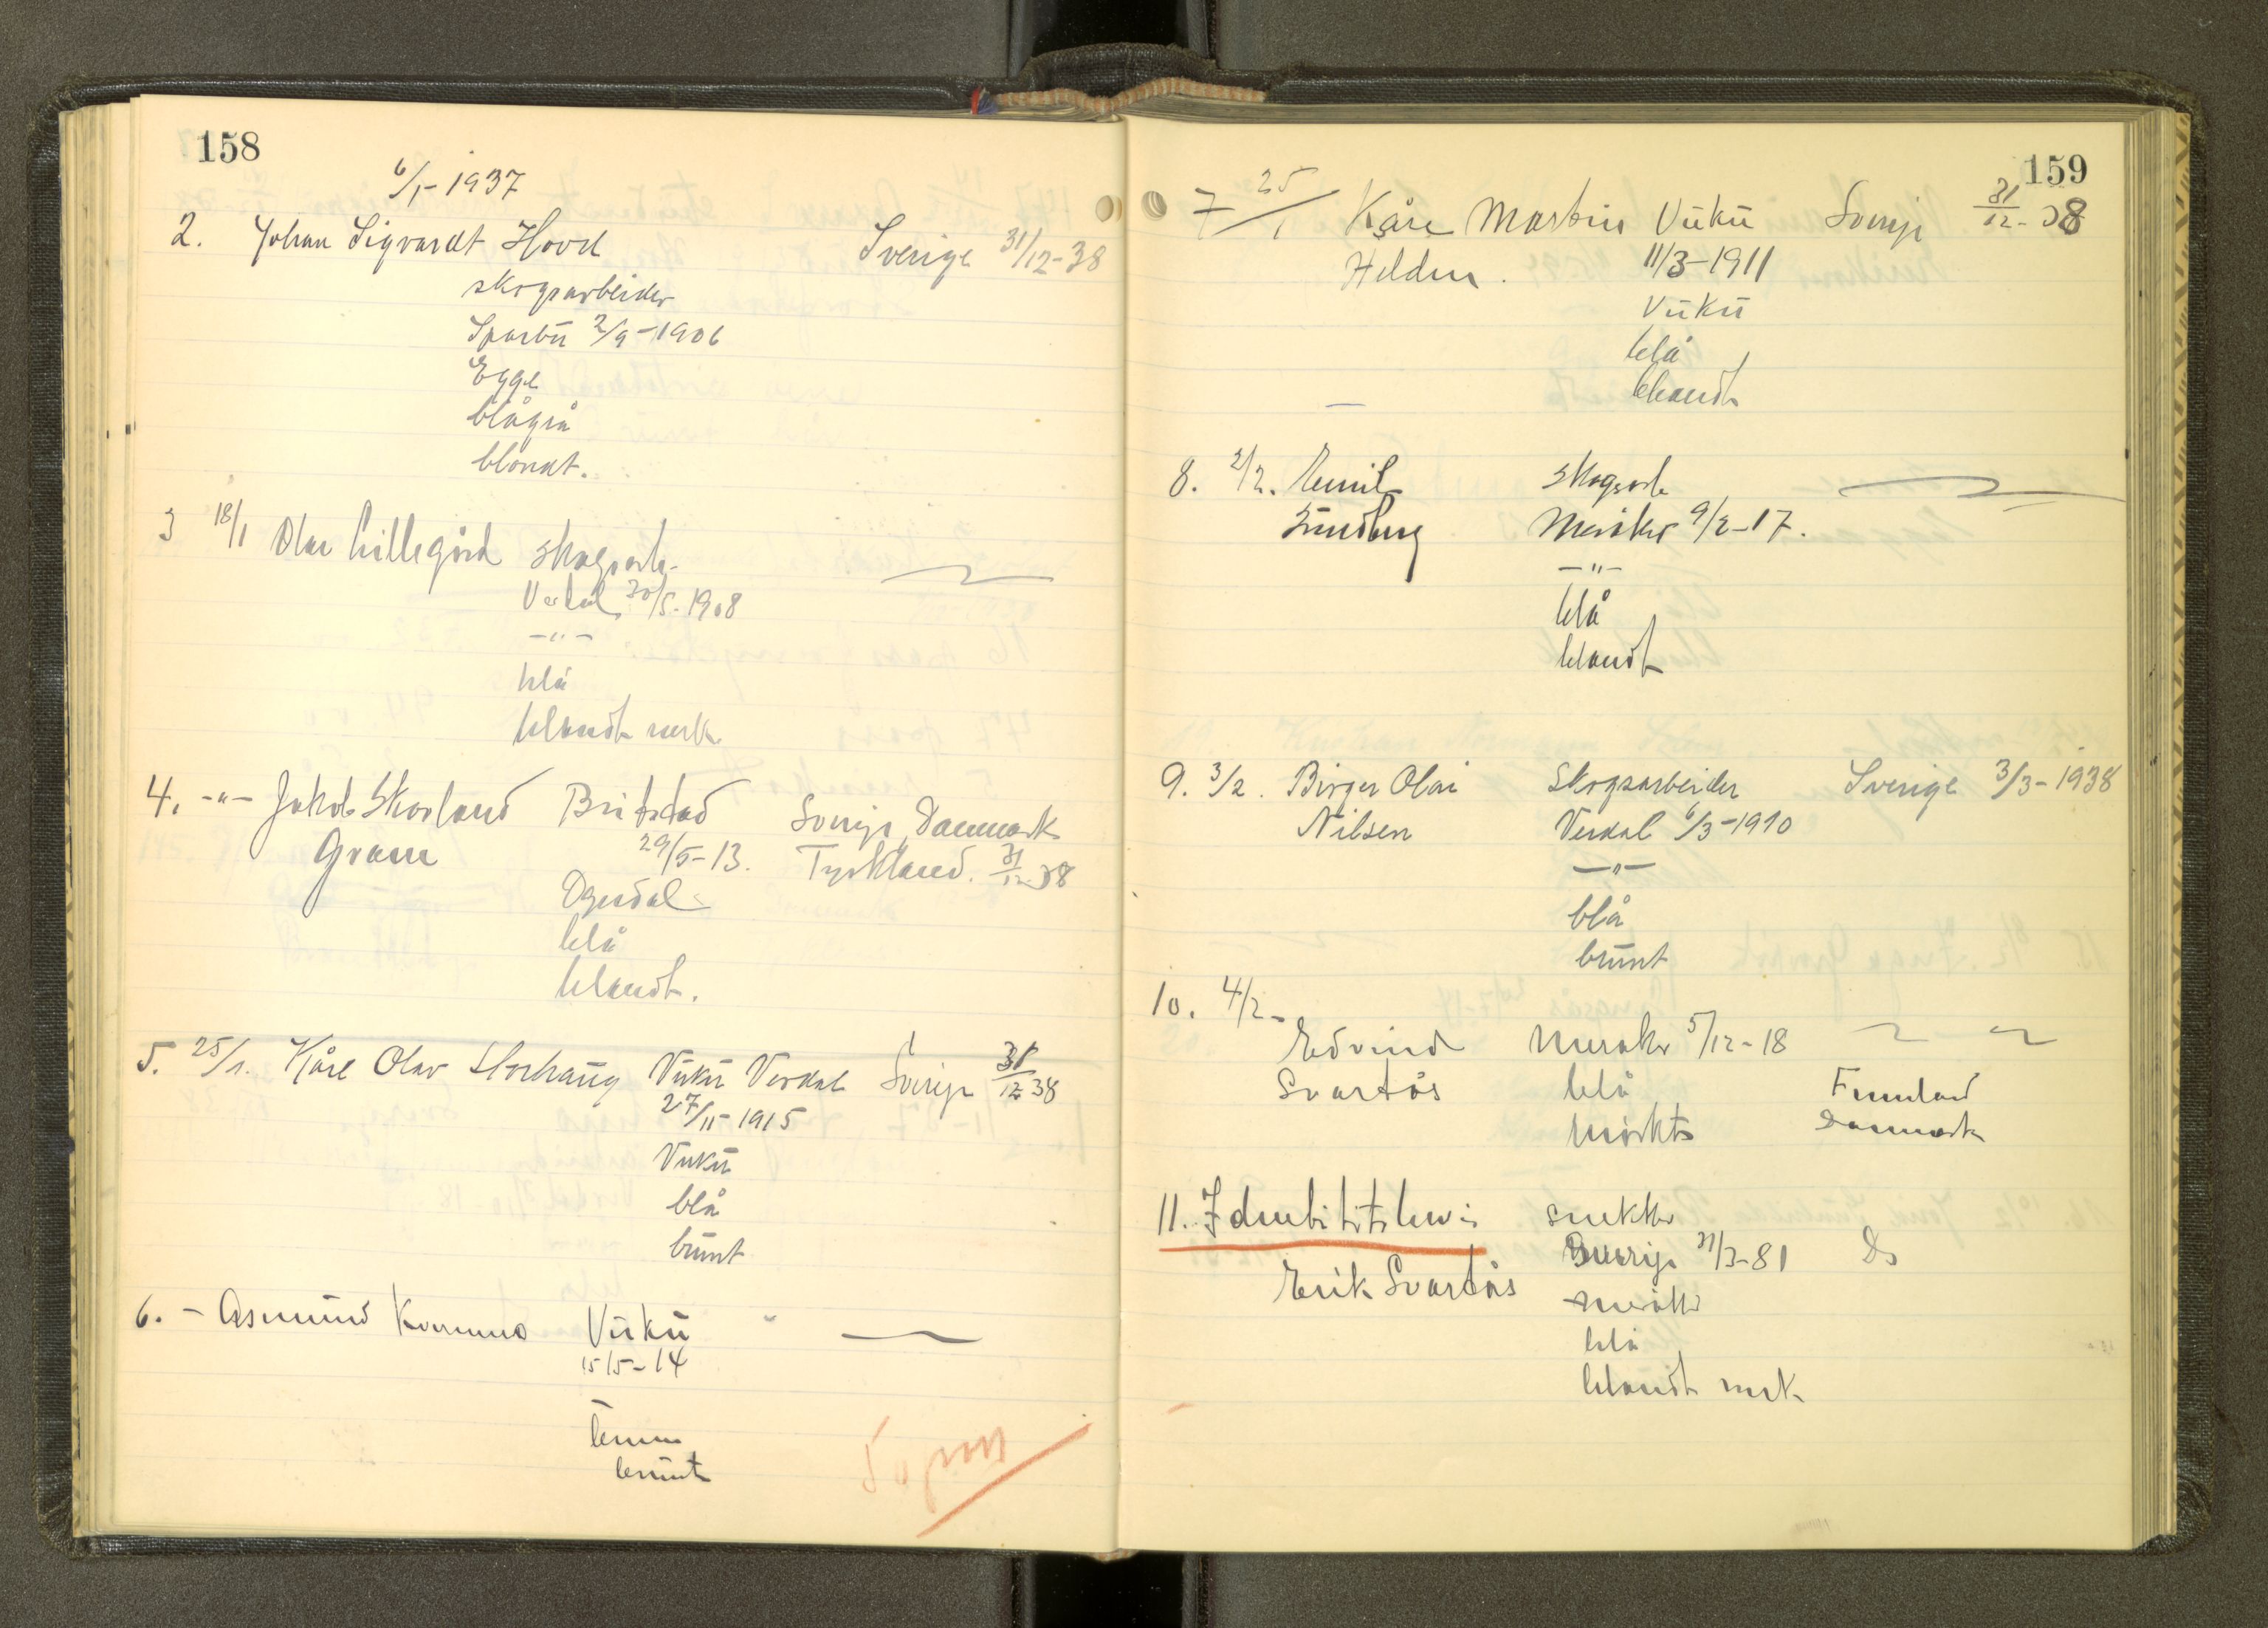 158
6/1-1937
2. Johan Sigvardt Hovd Sverige 31/12-38
skogsarbeider
Sparbu 2/9-1906
Egge
blågrå
blondt.
3 18/1 Olav Lillegård skogsarb.
Verdal 30/5-1908
-"-
blå
blondt
4. -"- Jakob Skavland Beitstad Sverige, Danmark
Gram 29/5-13. Tyskland. 31/12-38
Ogndal
blå
blondt.
5. 25/1. Kåre Olav Storhaug Vuku Verdal Sverige 31/12 38
27/11-1915
Vuku
blå
brunt
6. - Asmund Vuku
15/5-14
-
brune
brunt
159
7 25/1 Kåre Martin Vuku Sverige 31/12-38
Helden. 11/3-1911
Vuku
blå
blondt
8. 2/2. Emil skogsarb
Lundberg Meråker 9/2-17.
-"-
blå
blondt
9. 3/2. Birger Olai Skogsarbeider Sverige 3/3-1938
Nilsen Verdal 6/3-1910
-"-
blå
brunt
10. 4/2-
Edvind Meråker 5/12-18
Svartås blå Finnland
mørkt Danmark
11. Identitetsbevis snekker
Sverige 31/3-81 Do
Erik Svartås Meråker
blå
blondt